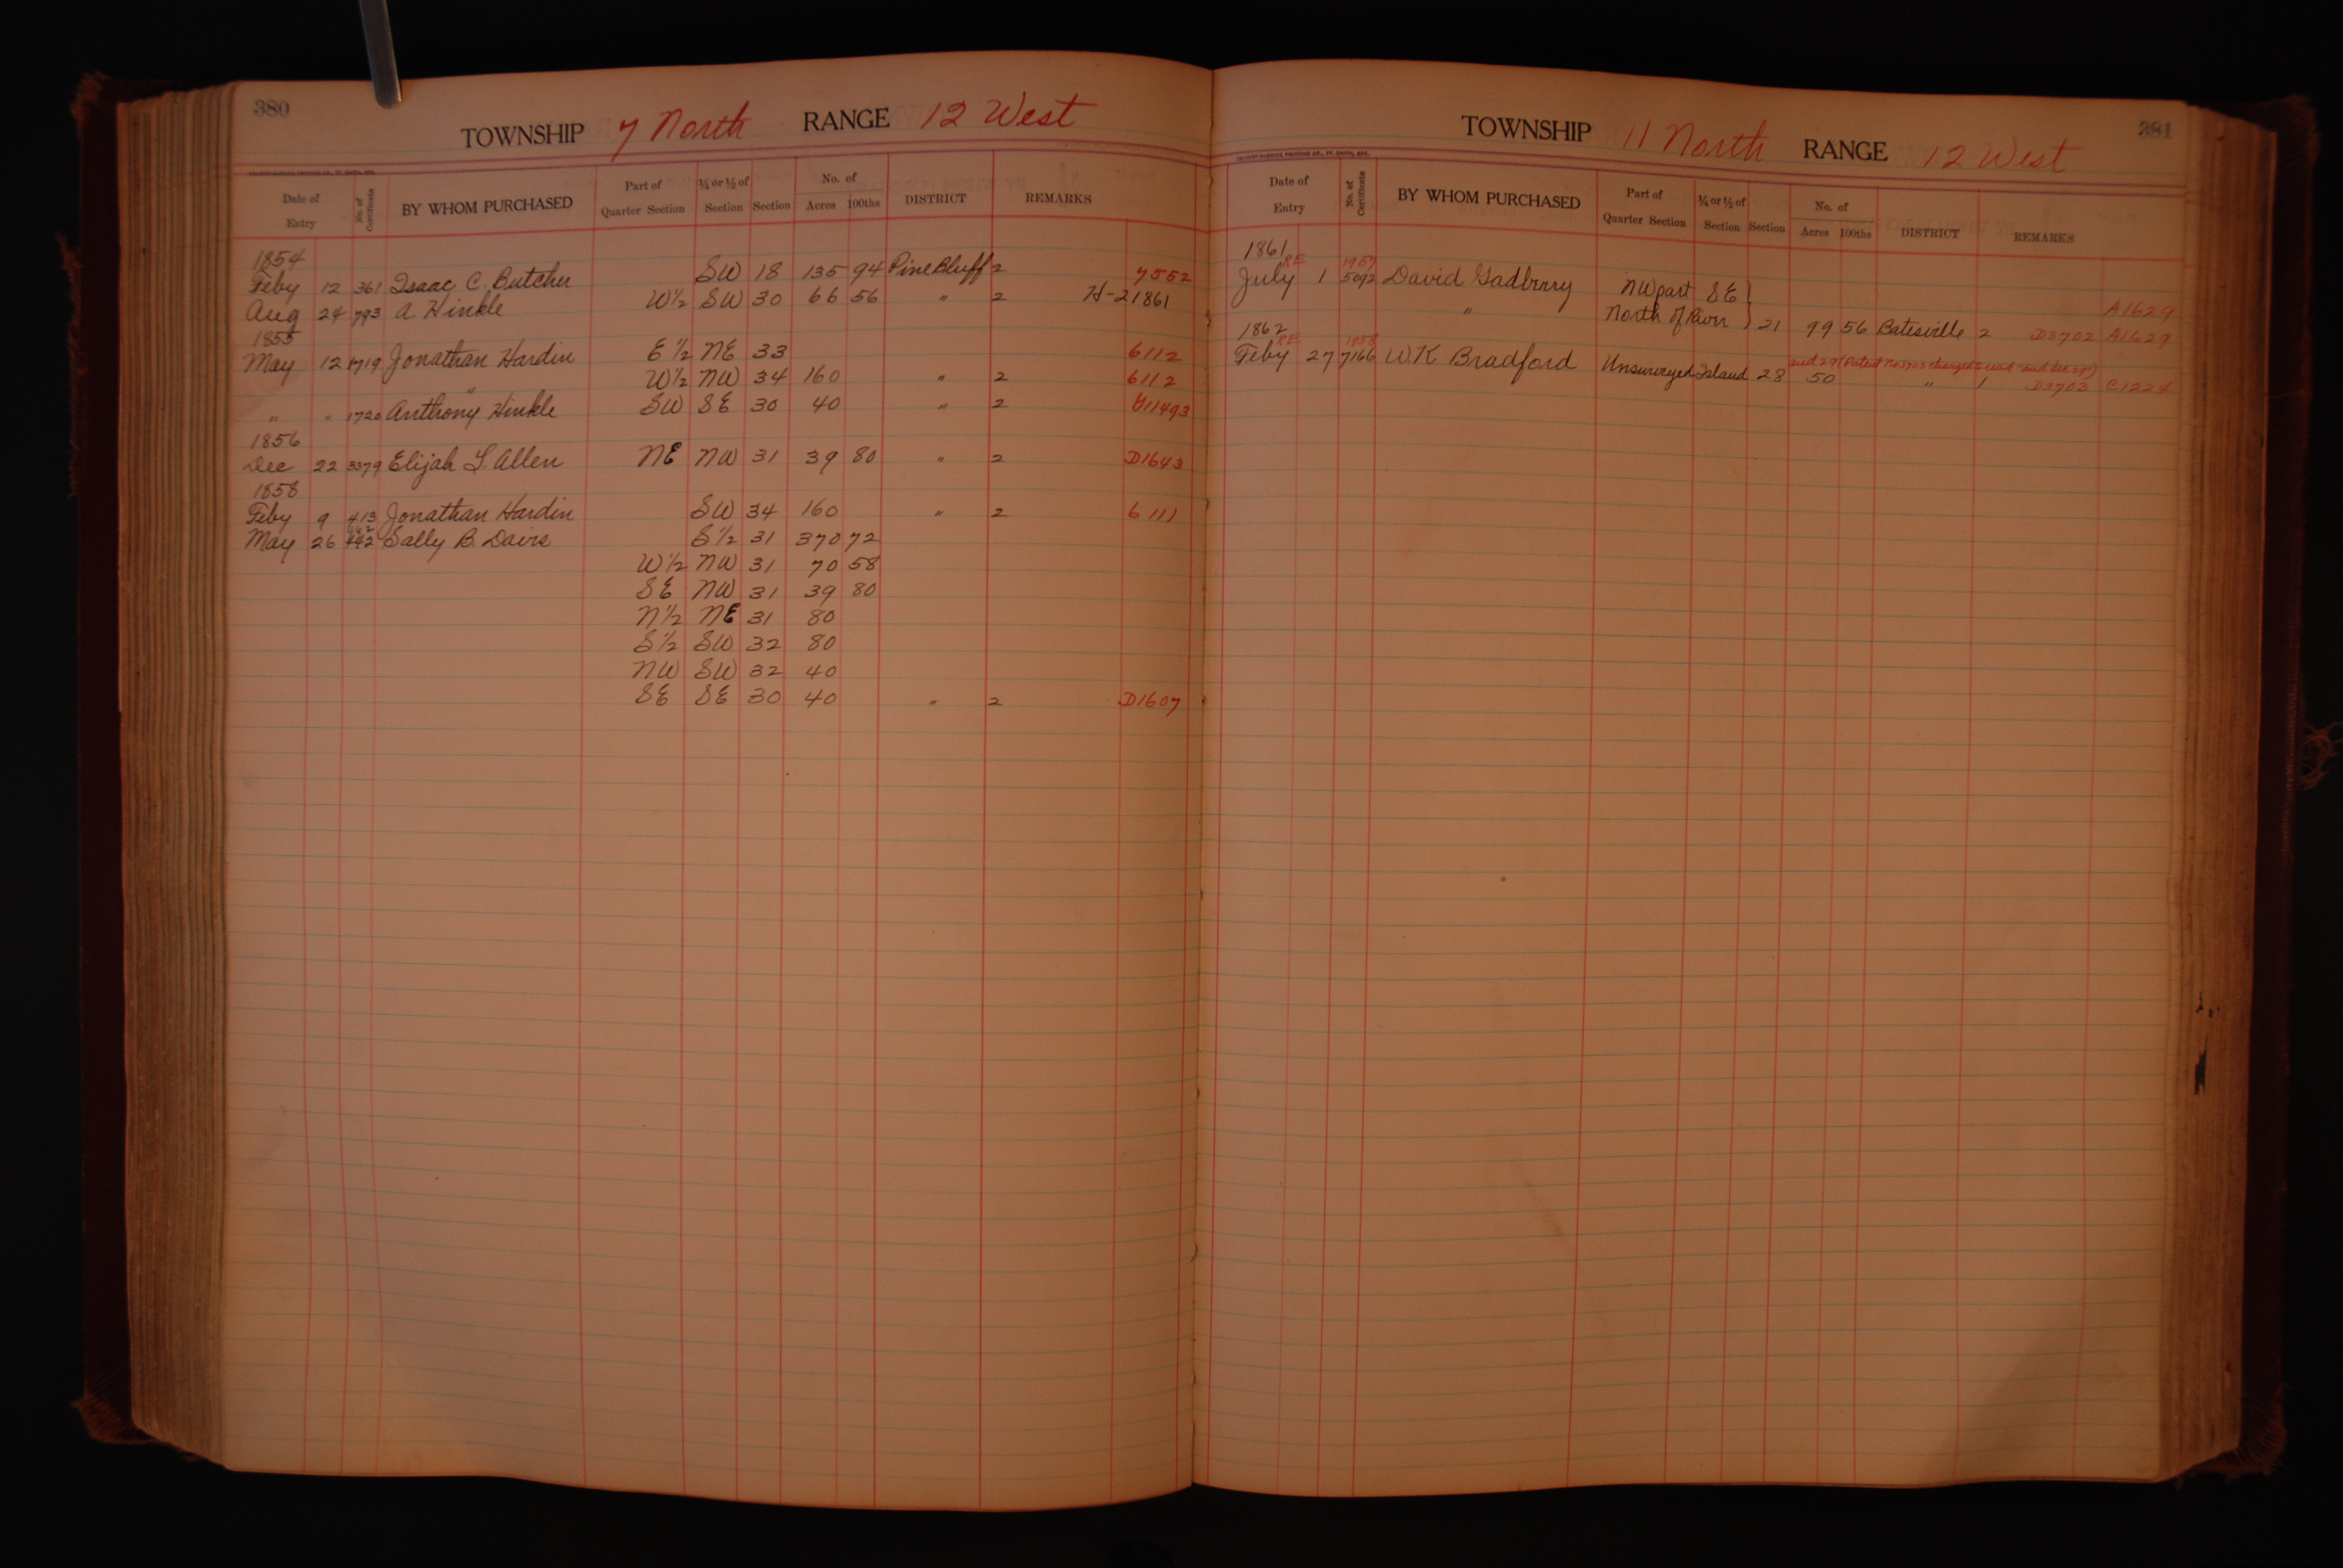 380
TOWNSHIP 7 North RANGE 12 West
Date of Entry No. of Certificate BY WHOM PURCHASED Part of Quarter Section ¼ or ½ of Section Section No. of Acres 100ths DISTRICT REMARKS
1854
Feby 12 361 Isaac C. Butcher SW 18 135 94 Pine Bluff 2 7552
Aug 24 793 A. Hinkle W½ SW 30 66 56 " 2 H-21861
1855
May 12 1719 Jonathan Hardin E½ NE 33 6112
" W½ NW 34 160 " 2 6112
" " 1720 Anthony Hinkle SW SE 30 40 " 2 11493
1856
Dec 22 3379 Elijah L. Allen NE NW 31 39 80 " 2 D1643
1858
Feby 9 413 Jonathan Hardin SW 34 160 " 2 6111
May 26 442 Sally B. Davis S½ 31 370 72
W½ NW 31 70 58
SE NW 31 39 80
N½ NE 31 80
S½ SW 32 80
NW SW 32 40
SE SE 30 40 " 2 D1607
381
TOWNSHIP 11 North RANGE 12 West
Date of Entry No. of Certificate BY WHOM PURCHASED Part of Quarter Section ¼ or ½ of Section Section No. of Acres 100ths DISTRICT REMARKS
1861
RE 1957
July 1 5092 David Gadberry NW part SE }
" North of River } 21 99 56 Batesville 2 D3702 A1629 A1629
1862
RE 1958
and 29 (Patent No 3703 changed to read "and Sec 29")
Feby 27 7166 W.K. Bradford Unsurveyed Island 28 50 " 1 D3703 C1224